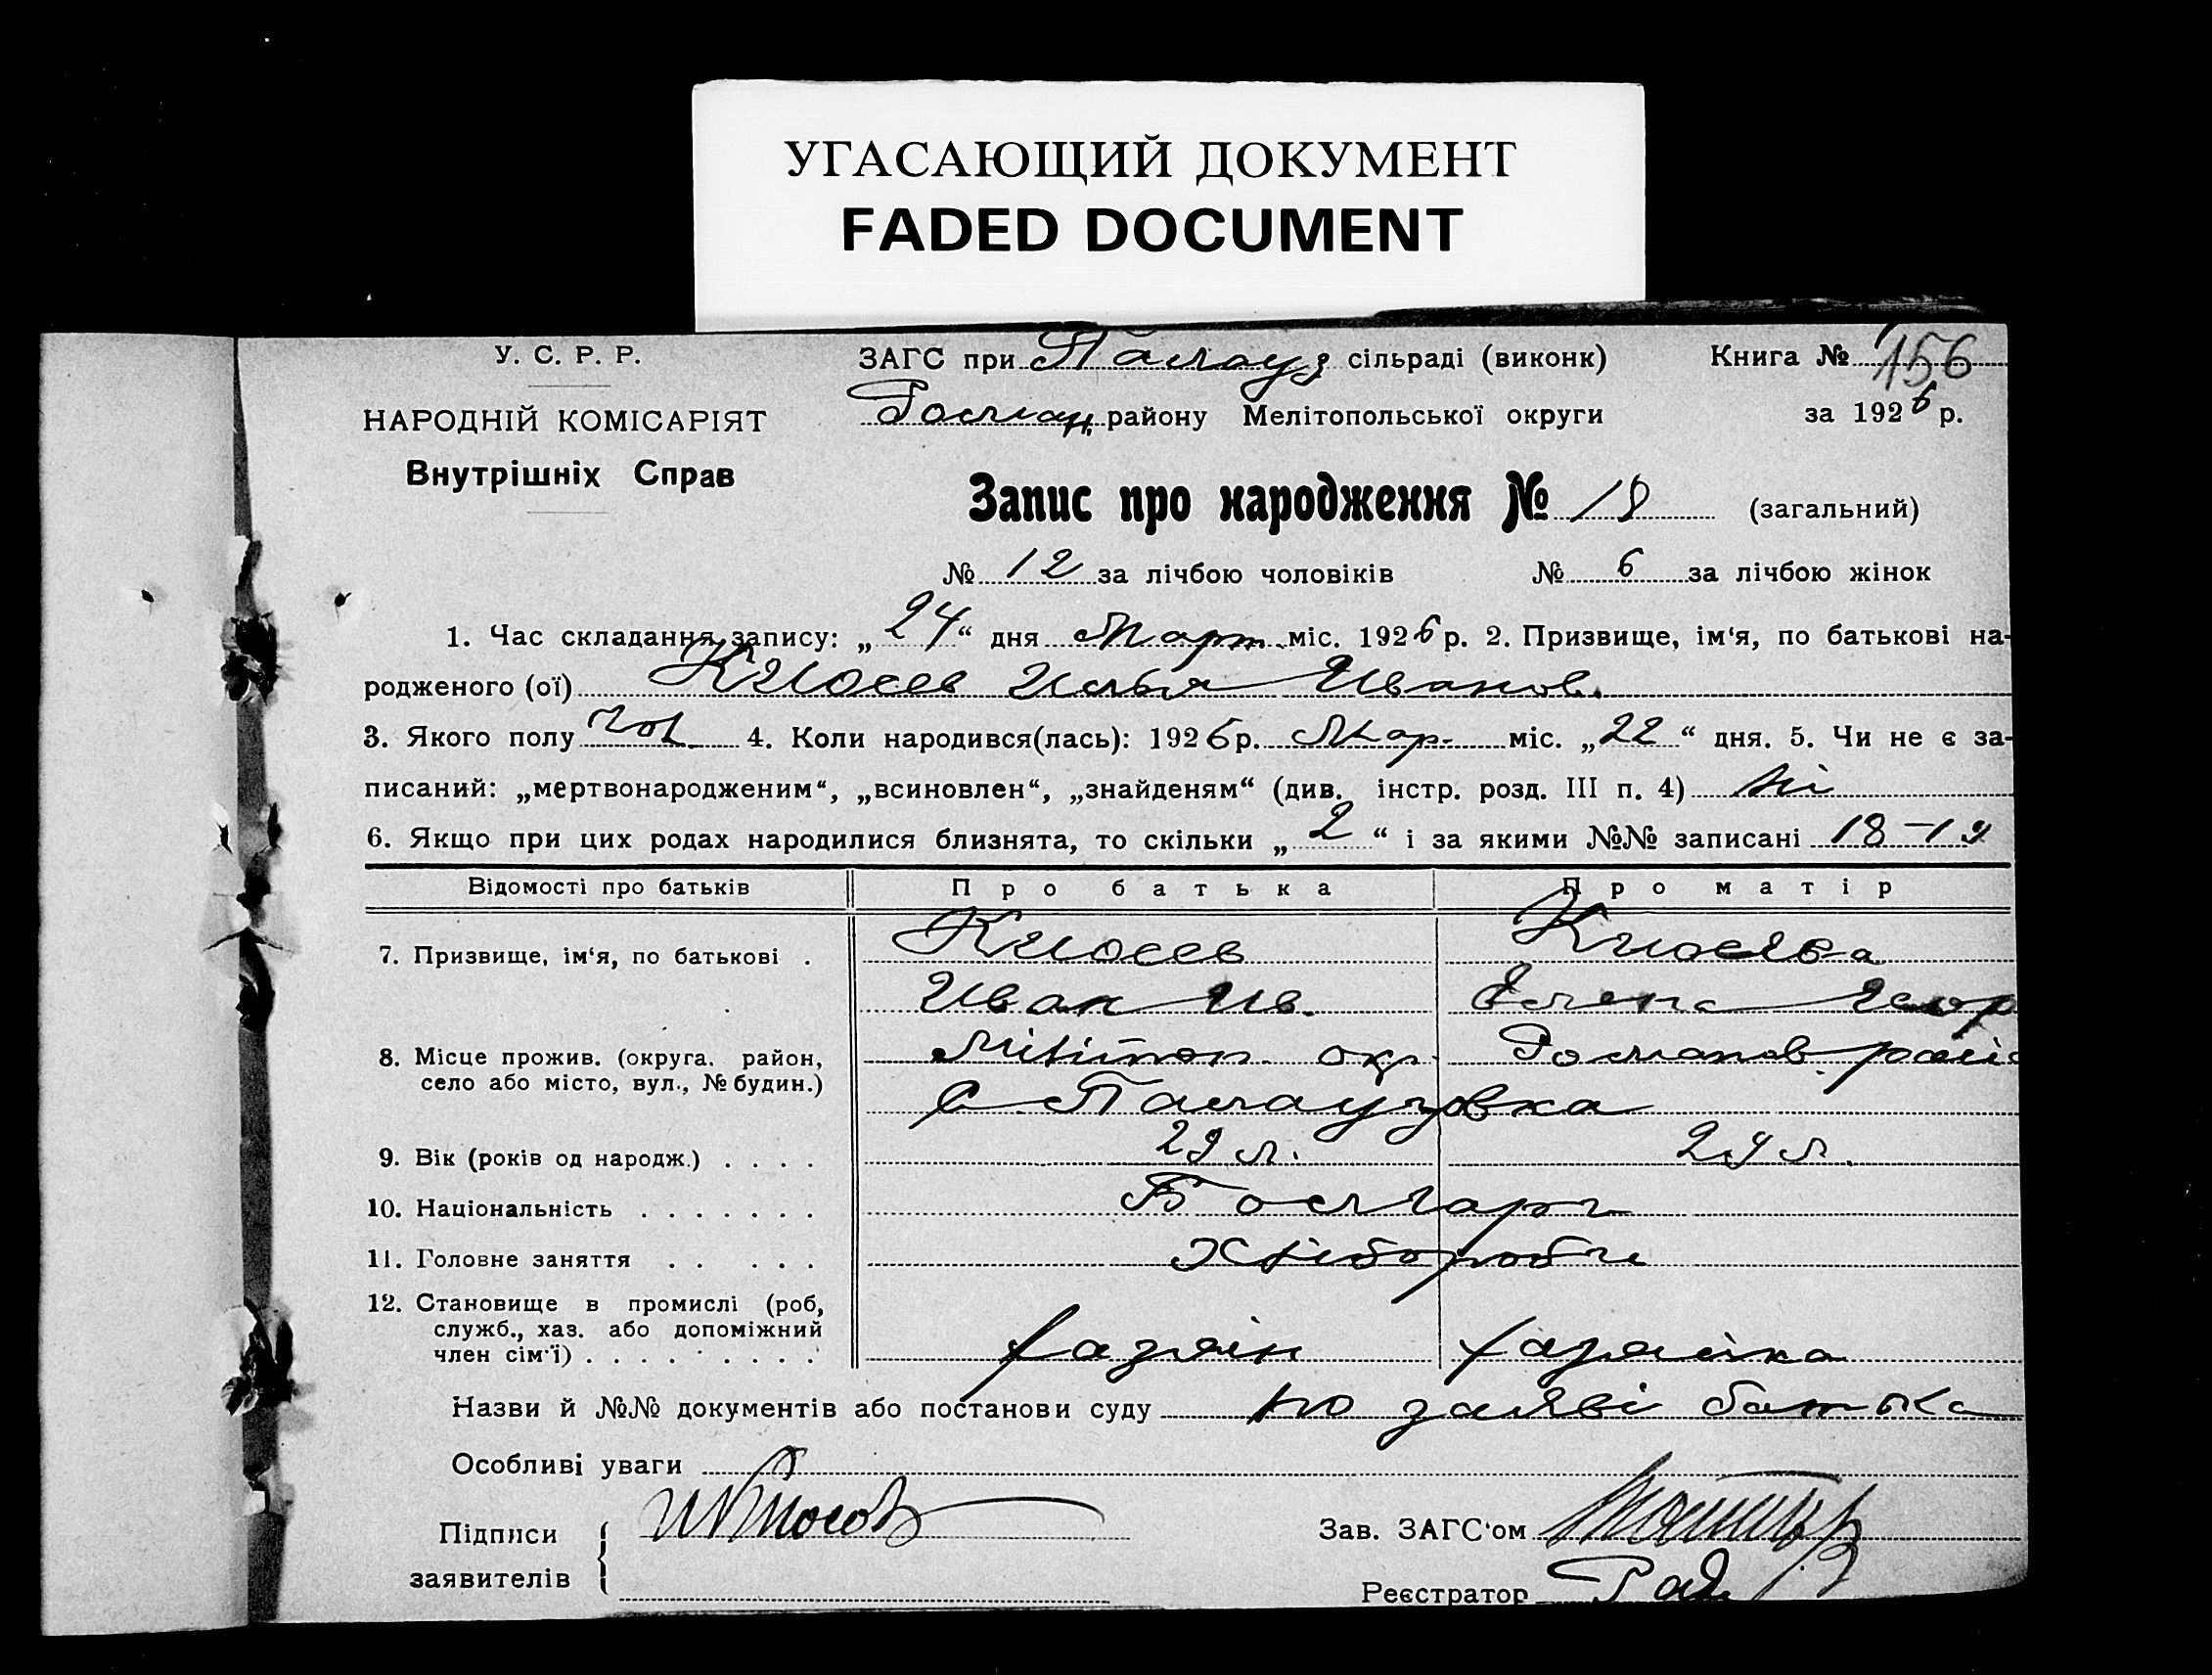 УГАСАЮЩИЙ ДОКУМЕНТ
FADED DOCUMENT
У. С. Р. Р.
НАРОДНІЙ КОМІСАРІЯТ
Внутрішніх Справ
ЗАГС при Палауз сільраді (виконк) Книга № 156
району Мелітопольської округи за 1926 р.
Запис про народження № 18 (загальний)
№ 12 за лічбою чоловіків № 6 за лічбою жінок
1. Час складання запису: „24“ дня Март міс. 1926 р. 2. Призвище, ім‘я, по батькові на-
родженого (ої) Киосев Илья Иванов.
3. Якого полу чол 4. Коли народився(лась): 1926 р. Мар. міс. „22“ дня. 5. Чи не є за-
писаний: „мертвонародженим“, „всиновлен“, „знайденям“ (див. інстр. розд. III п. 4) ні
6. Якщо при цих родах народилися близнята, то скільки „2“ і за якими №№ записані 18-19
Відомості про батьків Про батька Про матір
7. Призвище, ім‘я, по батькові . Киосев Киосева
Иван Ив. Елена
8. Місце прожив. (округа, район, окр. Романов.
село або місто, вул., № будин.) с Палаузовка
9. Вік (років од народж.) . . . . 29 л. 29 л.
10. Національність . . . . . . . Болгари
11. Головне заняття . . . . . Хліборобги
12. Становище в промислі (роб,
служб., хаз. або допоміжний
член сім‘ї) . . . . . . . . . хазяїн хазяйка
Назви й №№ документів або постанови суду по заяві батька
Особливі уваги
Підписи
заявителів
Зав. ЗАГС‘ом
Реєстратор